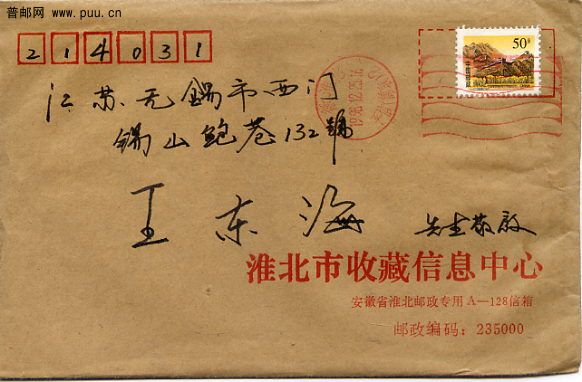 普邮网
www.puu.cn
214031
50分
1998.12.25.16
江苏无錫市西门
錫山鲍巷132號
王东海 先生敬啟
淮北市收藏信息中心
安徽省淮北邮政专用A—128信箱
邮政编码：235000